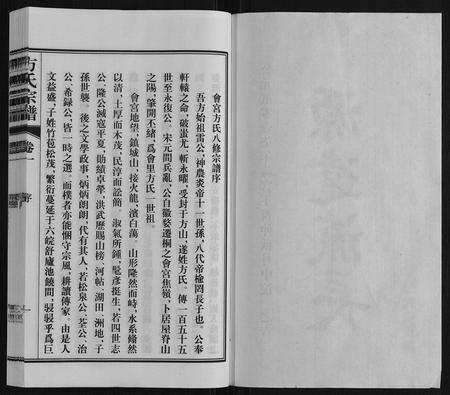 會宮方氏八修宗譜序
吾方始祖雷公，神農炎帝十一世孫，八代帝榆罔長子也。公奉
軒轅之命，破蚩尤、斬永曜，受封于方山，遂姓方氏。傳一百五十五
世至永復公。宋元間兵亂，公自徽婺遷桐之會宮焦嶺，卜居屋脊山
之陽，肇開丕緒，爲會里方氏一世祖。
會宮地望，鎮城山，接火龍，濱白蕩。山形隆然而峙，水系翛然
以清，土厚而木茂，民淳而訟簡。淑氣所鍾，髦彥挺生，若四世志
公、隆公滅寇平夏，勛績卓犖，洪武歷賜山榜、河帖、湖田、洲地，子
孫世襲。後之文學政事，炳炳朗朗，代有其人，若松泉公、荃公、治
公、希録公，皆一時之選。而樸者亦能悃守宗風，耕讀傳家。由是人
文益盛，子姓竹苞松茂，繁衍蔓延于六皖舒廬池饒間，駸駸乎爲巨
方氏宗譜
卷一
序
一